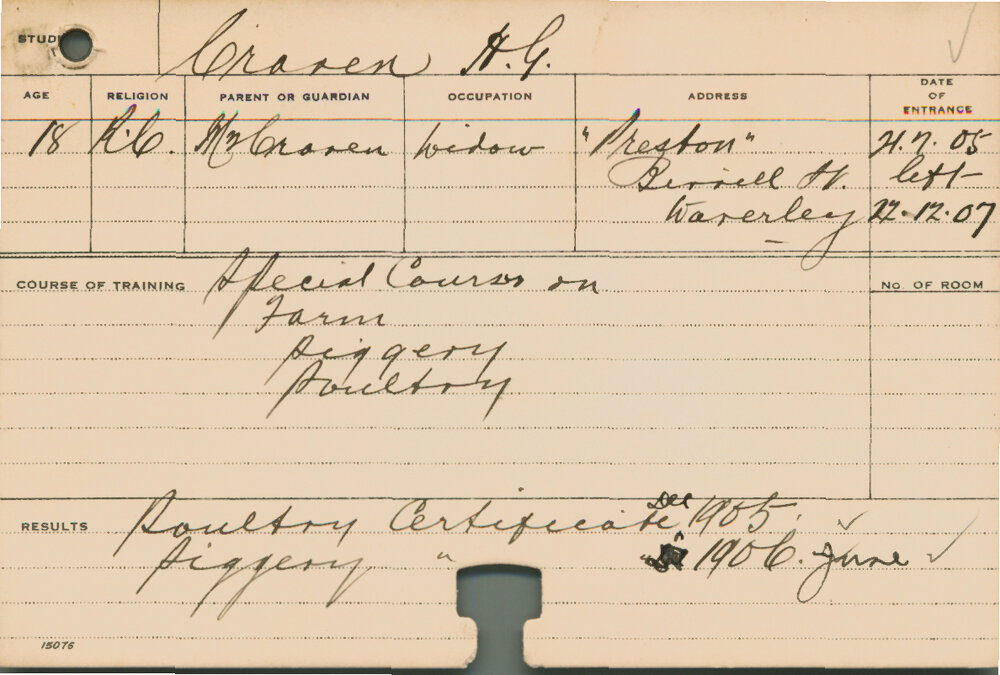 STUD
Craven H.G.
AGE RELIGION PARENT OR GUARDIAN OCCUPATION ADDRESS DATE OF ENTRANCE
18 R.C. Mrs Craven Widow "Preston" 21.7.05
Birrell St. left
Waverley 22.12.07
COURSE OF TRAINING Special Course on No. OF ROOM
Farm
Piggery
Poultry
RESULTS Poultry Certificate Dec 1905.
Piggery " " 1906. June
15076